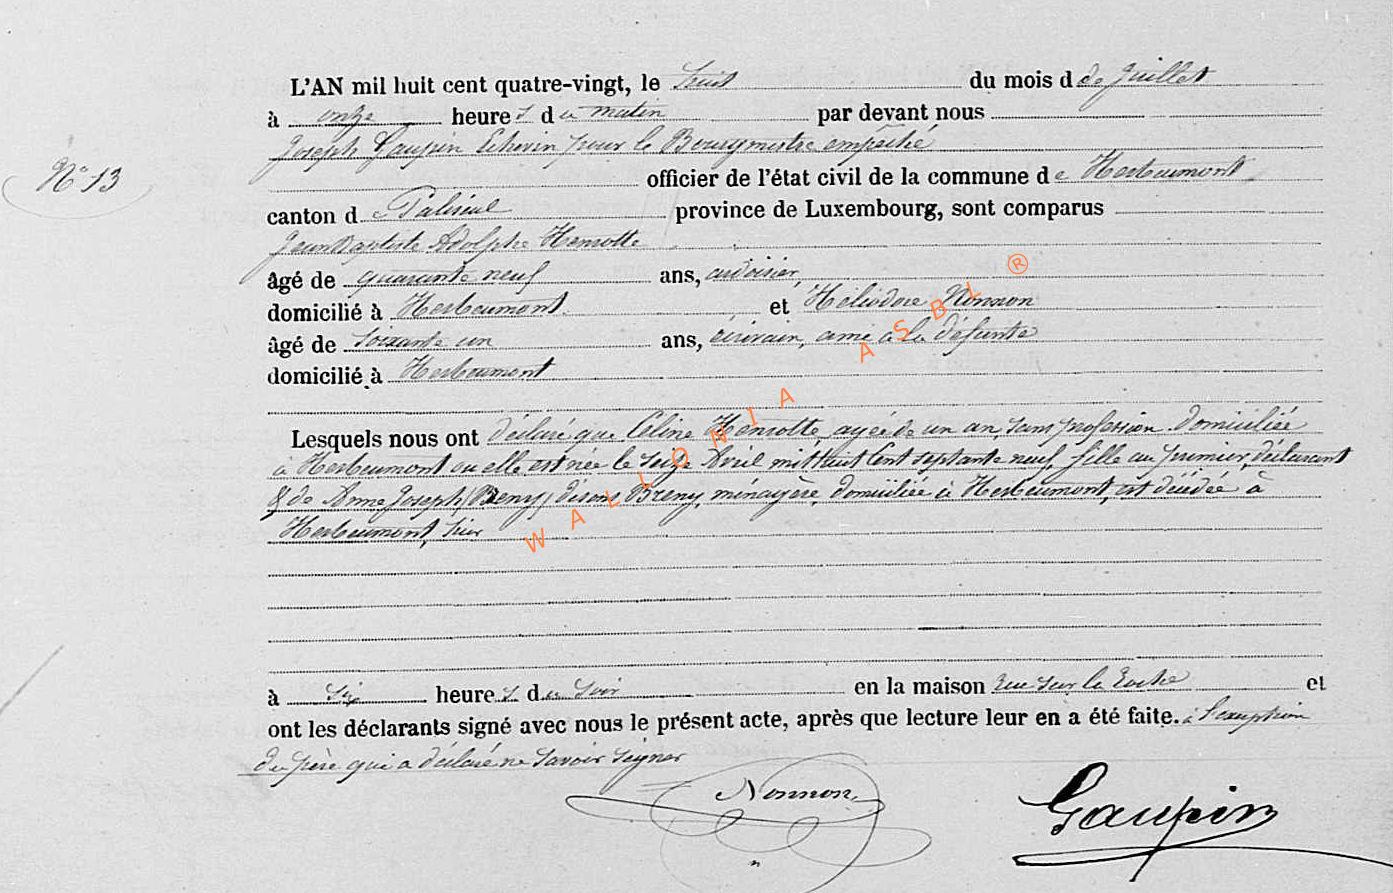 L'AN mil huit cent quatre-vingt, le huit du mois d de Juillet
à onze heures du matin par devant nous
Joseph Gaupin Echevin pour le Bourgmestre empêché
N° 13
officier de l'état civil de la commune de Herbeumont
canton de Paliseul province de Luxembourg, sont comparus
Jean Baptiste Adolphe Henrotte
âgé de quarante neuf ans, ardoisier,
domicilié à Herbeumont et Héliodore Nonnon
âgé de soixante un ans, écrivain, ami à la défunte
domicilié à Herbeumont
Lesquels nous ont déclaré que Céline Henrotte, agée de un an, sans profession domiciliée
à Herbeumont ou elle est née le seize Avril mil huit Cent septante neuf, fille au premier déclarant
& de Anne Joseph Breny, ménagère, domiciliée à Herbeumont, est décédée à
Herbeumont, hier
à six heures du soir en la maison rue sur la Roche et
ont les déclarants signé avec nous le présent acte, après que lecture leur en a été faite. à l'exception
du père qui a déclaré ne savoir signer
Nonnon
Gaupin
WALLONIA ASBL ®